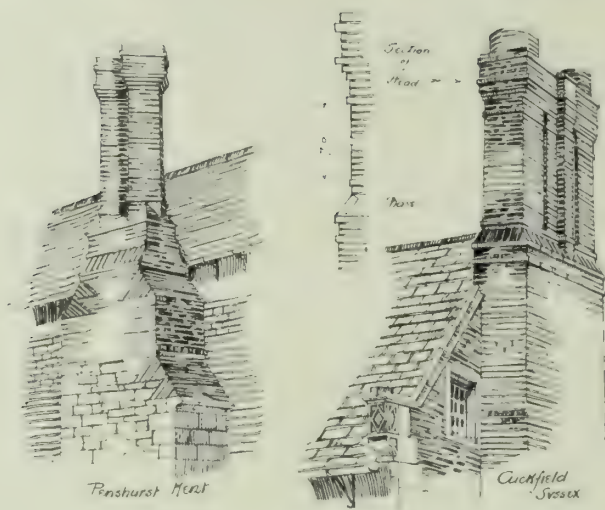 Section
of
Head
Base
Penshurst Kent
Cuckfield
Sussex